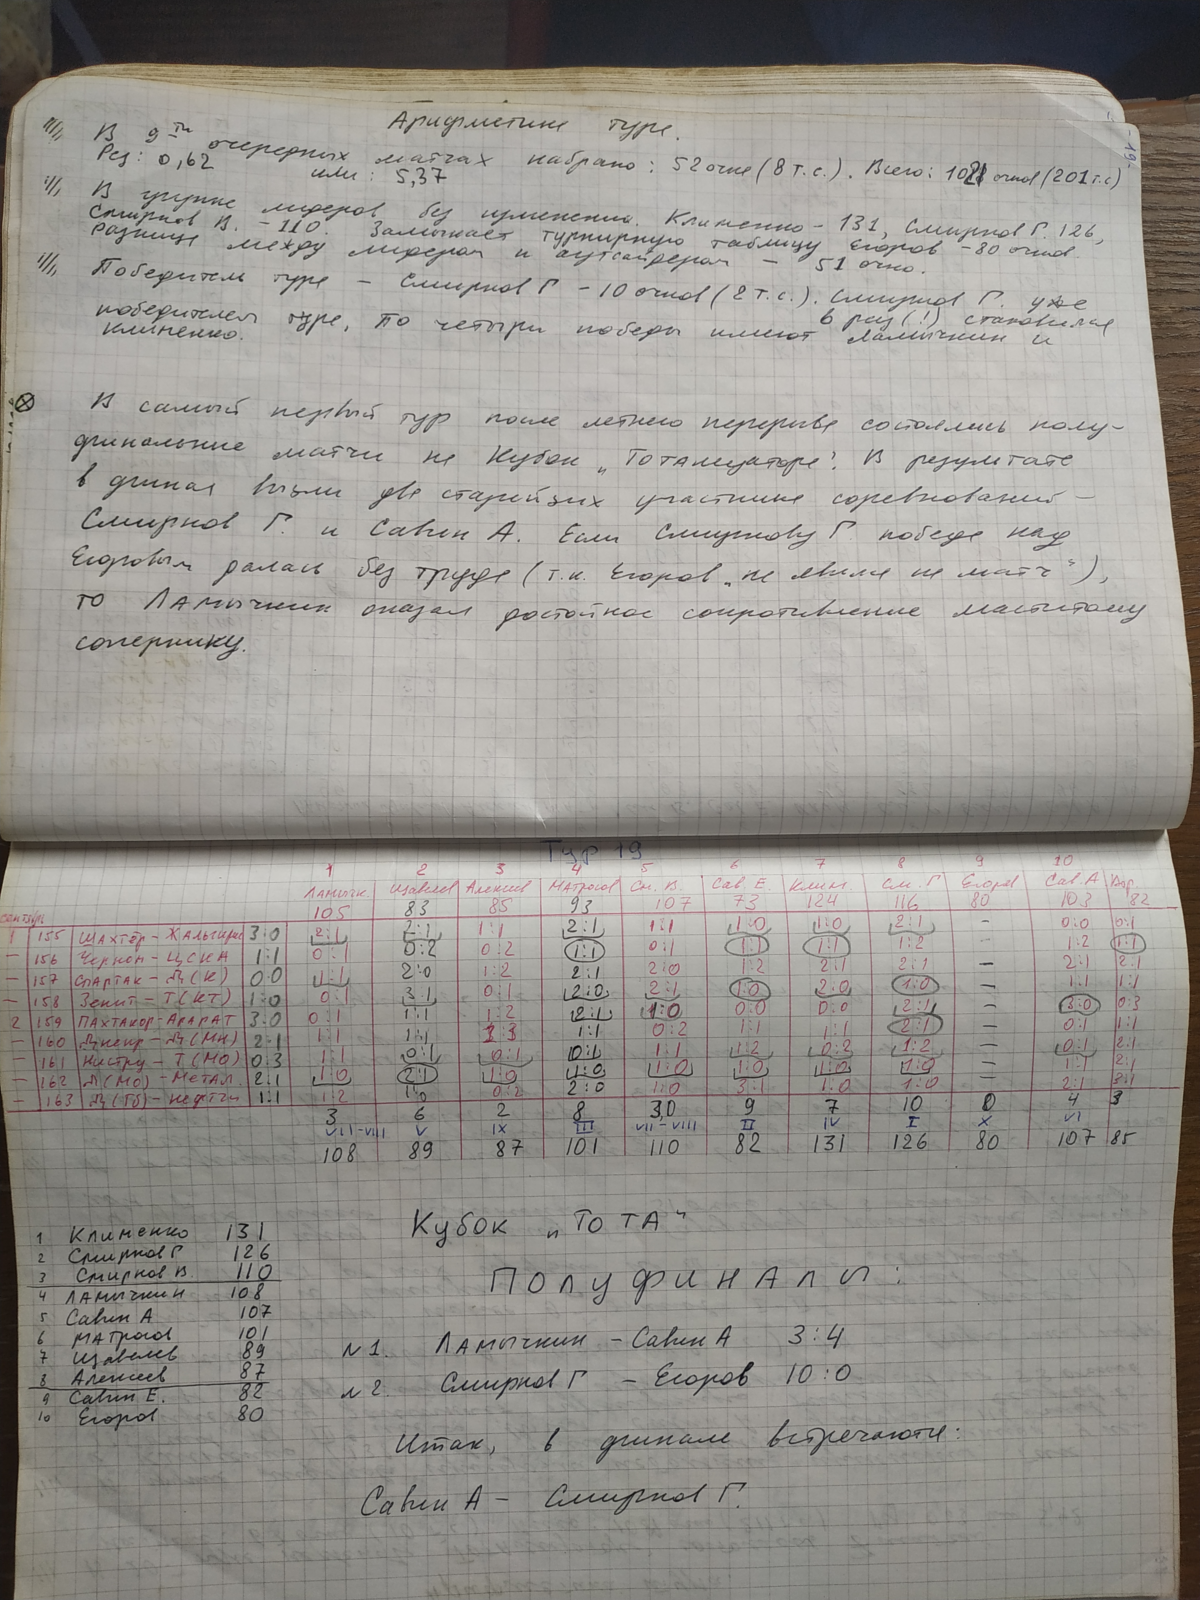 -19-
Арифметика тура.
В 9ти очередных матчах набрано: 52 очка (8 т.с.). Всего: 1021 очков (201 т.с)
Рез: 0,62 или: 5,37
В группе лидеров без изменений. Клименко - 131, Смирнов Г. 126,
Смирнов В. - 110. Замыкает турнирную таблицу Егоров - 80 очков.
Разница между лидером и аутсайдером - 51 очко.
Победитель тура - Смирнов Г - 10 очков (2 т.с.). Смирнов Г. уже
6 раз (!) становился
победителем тура. По четыри победы имеют Ламычкин и
Клименко.
В самый первый тур после летнего перерыва состоялись полу-
финальные матчи на Кубок „Тотализатора". В результате
в финал вышли два старейших участника соревнований -
Смирнов Г. и Савин А. Если Смирнову Г победа над
Егоровым далась без труда (т.к. Егоров „не явился на матч"),
то Ламычкин оказал достойное сопротивление маститому
сопернику.
Тур 19
1 2 3 4 5 6 7 8 9 10
Ламычк. Щавелев Алексеев Матросов См. В. Сав. Е. Клим. См. Г Егоров Сав. А
сентябрь 105 83 85 93 107 73 124 116 80 103 82
1 155 Шахтёр - Жальгирис 3:0 2:1 2:1 1:1 2:1 1:1 1:0 1:0 2:1 - 0:0 0:1
- 156 Черном - ЦСКА 1:1 0:1 0:2 0:2 1:1 0:1 1:1 1:1 1:2 - 1:2 1:1
- 157 Спартак - Д(К) 0:0 1:1 2:0 1:2 2:1 2:0 1:2 2:1 2:1 - 2:1 2:1
- 158 Зенит - Т(КТ) 1:0 0:1 3:1 0:1 2:0 2:1 1:0 2:0 1:0 - 1:1 1:1
2 159 Пахтакор - Арарат 3:0 0:1 1:1 1:2 2:1 1:0 0:0 0:0 2:1 - 3:0 0:3
- 160 Днепр - Д(Мн) 2:1 1:1 1:1 1:1 0:2 1:1 1:1 2:1 - 0:1 1:1
- 161 Нистру - Т(МО) 0:3 1:1 0:1 0:1 0:1 1:1 1:2 0:2 1:2 - 0:1 2:1
- 162 Д(МО) - Метал. 2:1 1:0 2:1 1:0 1:0 1:0 1:0 1:0 1:0 - 1:2 2:1
- 163 Д(Тб) - Нефтчи 1:1 1:2 1:0 0:2 2:0 1:0 3:1 1:0 1:0 - 2:1 3:1
3 6 2 8 3,0 9 7 10 0 4 3
VII-VIII V IX III VII-VIII II IV I X VI
108 89 87 101 110 82 131 126 80 107 85
1 Клименко 131
2 Смирнов Г 126
3 Смирнов В. 110
4 Ламычкин 108
5 Савин А 107
6 Матросов 101
7 Щавелев 89
8 Алексеев 87
9 Савин Е. 82
10 Егоров 80
Кубок „Тота"
Полуфиналы:
N1. Ламычкин - Савин А 3:4
N2. Смирнов Г - Егоров 10:0
Итак, в финале встречаются:
Савин А - Смирнов Г.